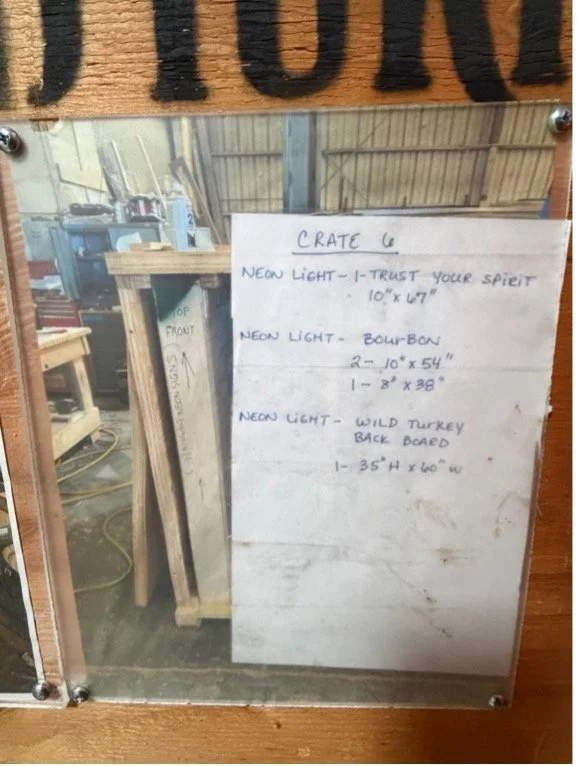 CRATE 6
NEON LIGHT - 1 - TRUST YOUR SPIRIT
10" x 67"
NEON LIGHT - BOURBON
2 - 10" x 54"
1 - 8" x 38"
NEON LIGHT - WILD TURKEY
BACK BOARD
1 - 35" H x 60" W
TOP
FRONT